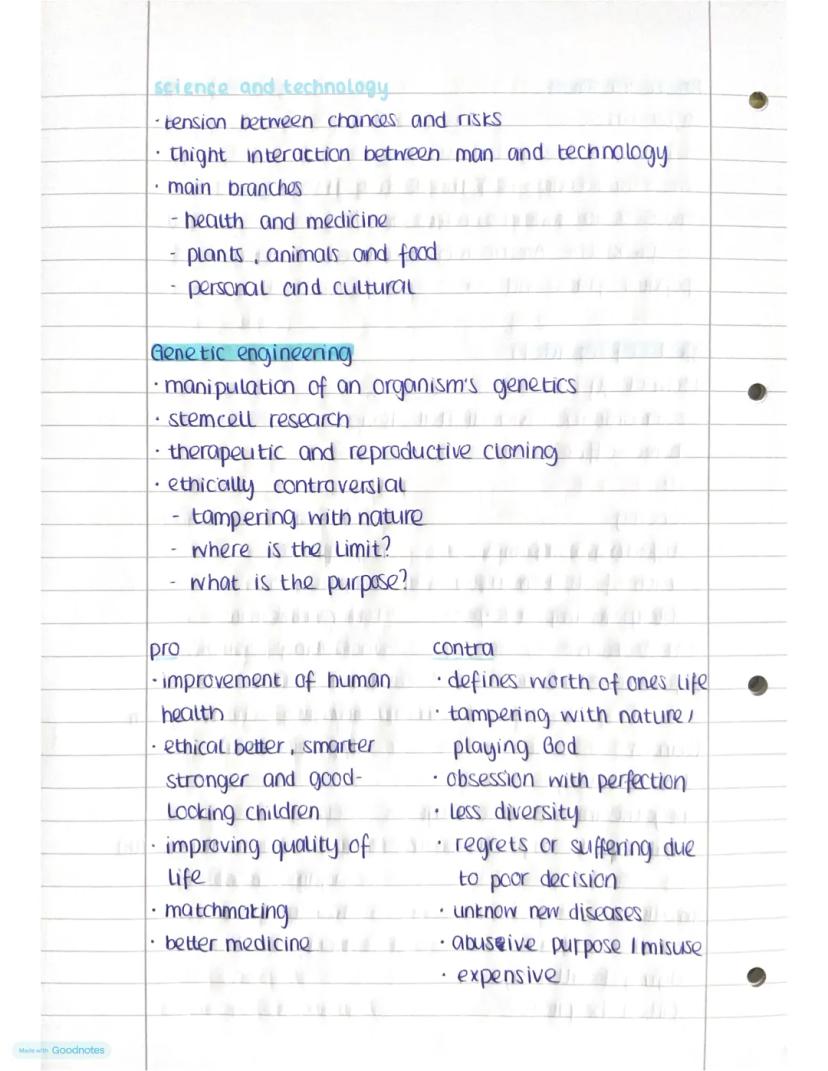 science and technology
· tension between chances and risks
· thight interaction between man and technology
· main branches
- health and medicine
- plants, animals and food
- personal and cultural
Genetic engineering
· manipulation of an organism's genetics
· stemcell research
· therapeutic and reproductive cloning
· ethically controversial
- tampering with nature
- where is the limit?
- what is the purpose?
pro
· improvement of human
health
· ethical better, smarter
stronger and good-
locking children
· improving quality of
life
· matchmaking
· better medicine
contra
· defines worth of ones life
· tampering with nature /
playing God
· obsession with perfection
· less diversity
· regrets or suffering due
to poor decision
· unknow new diseases
· abuseive purpose / misuse
· expensive
Made with Goodnotes